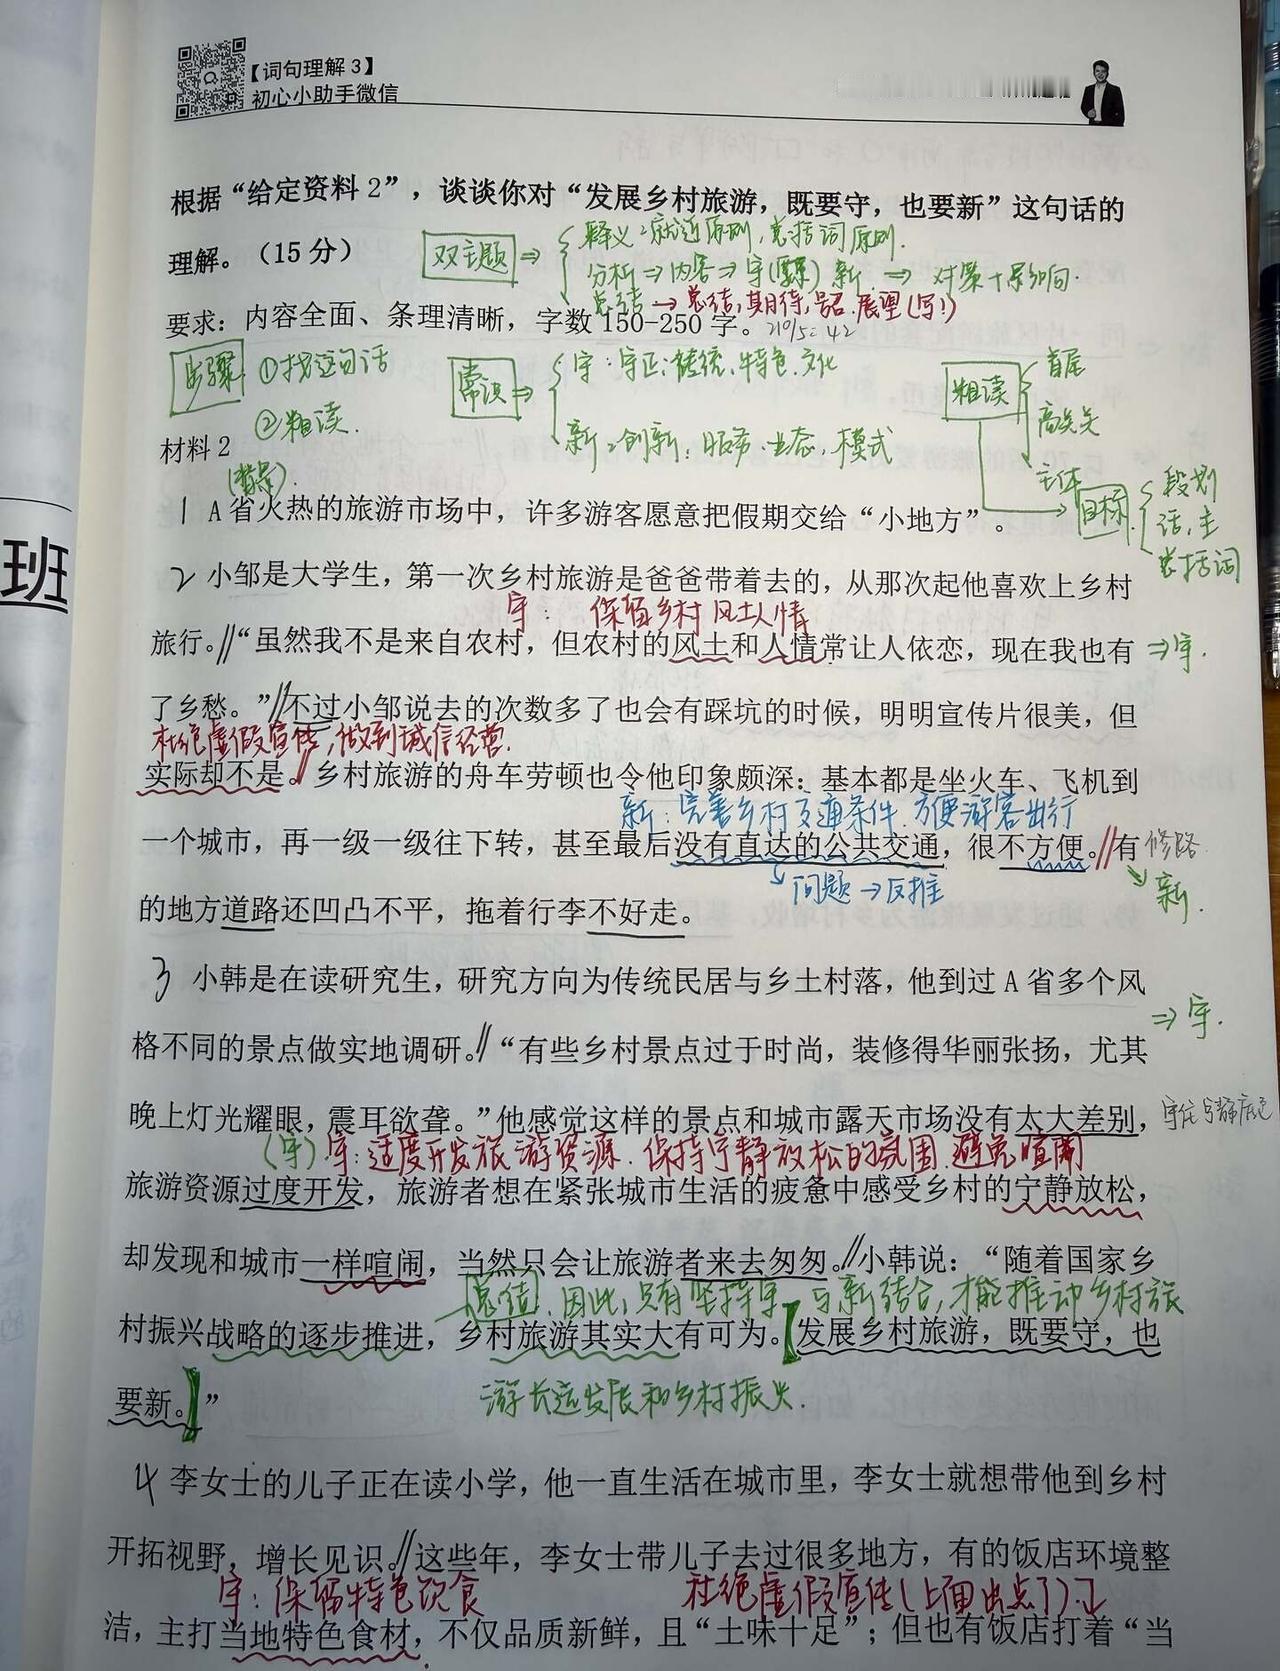 【词句理解 3】
初心小助手微信
根据“给定资料 2”，谈谈你对“发展乡村旅游，既要守，也要新”这句话的
双主题 ⇒ 释义：就近原则，总括词原则.
理解。（15 分）
分析 ⇒ 内容 ⇒ 守 新 ⇒ 对策+影响.
总结 → 总结，期待，号召，展望（写！）
要求：内容全面、条理清晰，字数 150-250 字。
210/5=42
步骤 ①找这句话
常识 ⇒ 守：守正：传统、特色、文化
粗读 首尾
②粗读.
高关关
新：创新：服务、业态、模式
材料 2
主体
(背景).
目标 段划
话，主
总括词
1 A 省火热的旅游市场中，许多游客愿意把假期交给“小地方”。
2 小邹是大学生，第一次乡村旅游是爸爸带着去的，从那次起他喜欢上乡村
守： 保留乡村风土人情
旅行。“虽然我不是来自农村，但农村的风土和人情常让人依恋，现在我也有 ⇒守.
了乡愁。”不过小邹说去的次数多了也会有踩坑的时候，明明宣传片很美，但
杜绝虚假宣传，做到诚信经营.
实际却不是。乡村旅游的舟车劳顿也令他印象颇深：基本都是坐火车、飞机到
新：完善乡村交通条件.方便游客出行
一个城市，再一级一级往下转，甚至最后没有直达的公共交通，很不方便。有 修路
问题 → 反推
新.
的地方道路还凹凸不平，拖着行李不好走。
3 小韩是在读研究生，研究方向为传统民居与乡土村落，他到过 A 省多个风
⇒守.
格不同的景点做实地调研。“有些乡村景点过于时尚，装修得华丽张扬，尤其
晚上灯光耀眼，震耳欲聋。”他感觉这样的景点和城市露天市场没有太大差别，
守住宁静底色
(守) 守：适度开发旅游资源.保持宁静放松的氛围.避免喧闹
旅游资源过度开发，旅游者想在紧张城市生活的疲惫中感受乡村的宁静放松，
却发现和城市一样喧闹，当然只会让旅游者来去匆匆。小韩说：“随着国家乡
总结.因此，只有坚持守与新结合，才能推动乡村旅
村振兴战略的逐步推进，乡村旅游其实大有可为。发展乡村旅游，既要守，也
要新。”
游长远发展和乡村振兴.
4 李女士的儿子正在读小学，他一直生活在城市里，李女士就想带他到乡村
开拓视野，增长见识。这些年，李女士带儿子去过很多地方，有的饭店环境整
守：保留特色饮食
杜绝虚假宣传(上面出点了)
洁，主打当地特色食材，不仅品质新鲜，且“土味十足”；但也有饭店打着“当
班